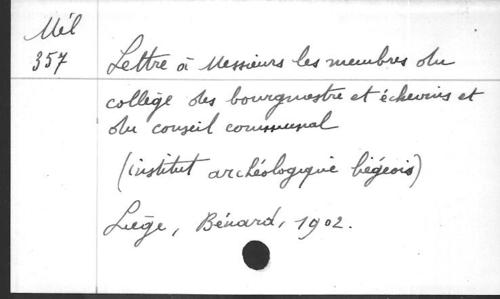 Mél
357
Lettre à Messieurs les membres du
collège des bourgmestre et échevins et
du conseil communal
(institut archéologique liégeois)
Liège, Bénard, 1902.